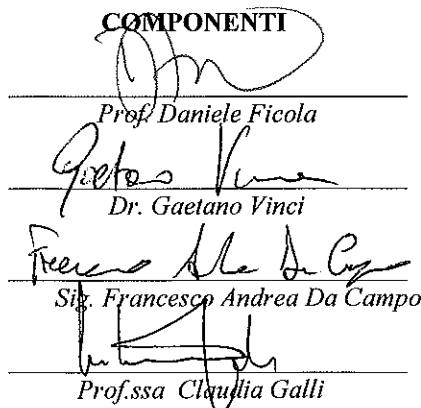 COMPONENTI
Prof. Daniele Ficola
Gaetano Vinci
Dr. Gaetano Vinci
Francesco Andrea Da Campo
Sig. Francesco Andrea Da Campo
Prof.ssa Claudia Galli